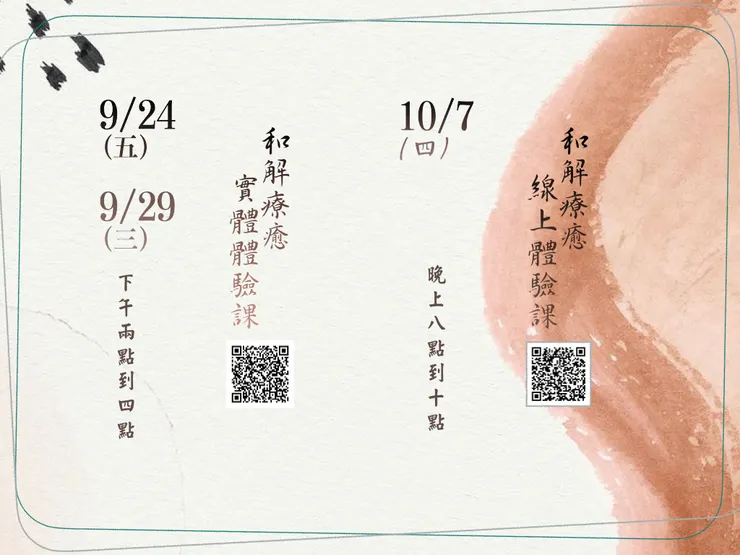 9/24
(五)
9/29
(三)
下午兩點到四點
和解療癒
實體體驗課
10/7
(四)
晚上八點到十點
和解療癒
線上體驗課